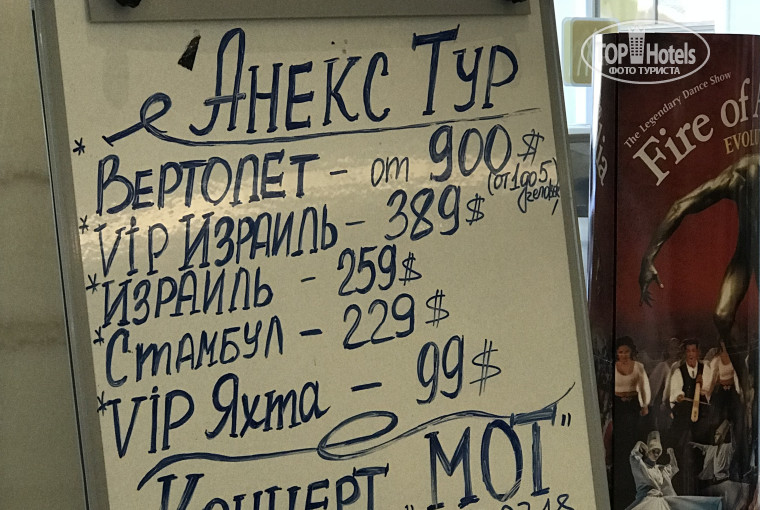 TOP Hotels
ФОТО ТУРИСТА
Анекс Тур
* Вертолет - от 900 $
(от 1 до 5 человек)
* VIP Израиль - 389 $
* Израиль - 259 $
* Стамбул - 229 $
* VIP Яхта - 99 $
Концерт "МОТ"
The Legendary Dance Show
Fire of